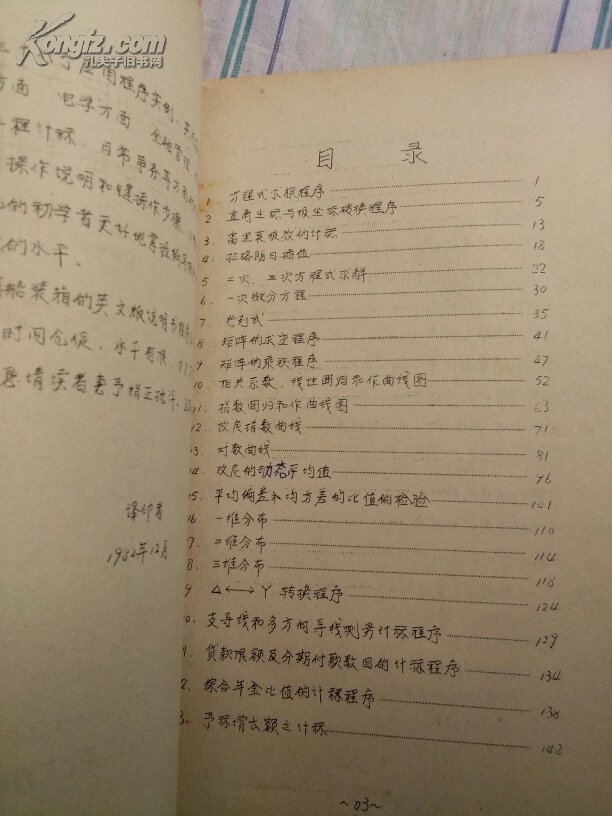 Kongfz.com
孔夫子旧书网
应用程序实例,
方面 电学方面 金融管理
程计祘、日常事务等方面
操作说明和键操作步骤、
的初学者更好地掌握
的水平。
船装箱的英文版说明书
时间仓促、水平有限、
恳请读者予指正批评。
译印者
1982年12月
目 录
1. 方程式求根程序 1
2 直角坐标与极坐标转换程序 5
3. 富里哀级数的计祘 13
4. 拉格朗日插值 18
5 二次、三次方程式求解 22
6 一次微分方程 30
7 行列式 35
8 矩阵的求逆程序 41
9 矩阵的乘积程序 47
10 相关系数、线性回归和作曲线图 52
11. 指数回归和作曲线图 63
12 改良指数曲线 71
3. 对数曲线 81
14 改良的动态平均值 96
5 平均偏差和均方差的比值的检验 101
6 一维分布 110
7. 二维分布 114
8. 三维分布 118
9 △←→Y 转换程序 124
0. 支导线和多方向导线测量计祘程序 129
1. 贷款限额及分期付款数目的计祘程序 134
2. 综合年金比值的计祘程序 138
3. 予祘增长额之计祘 142
~03~